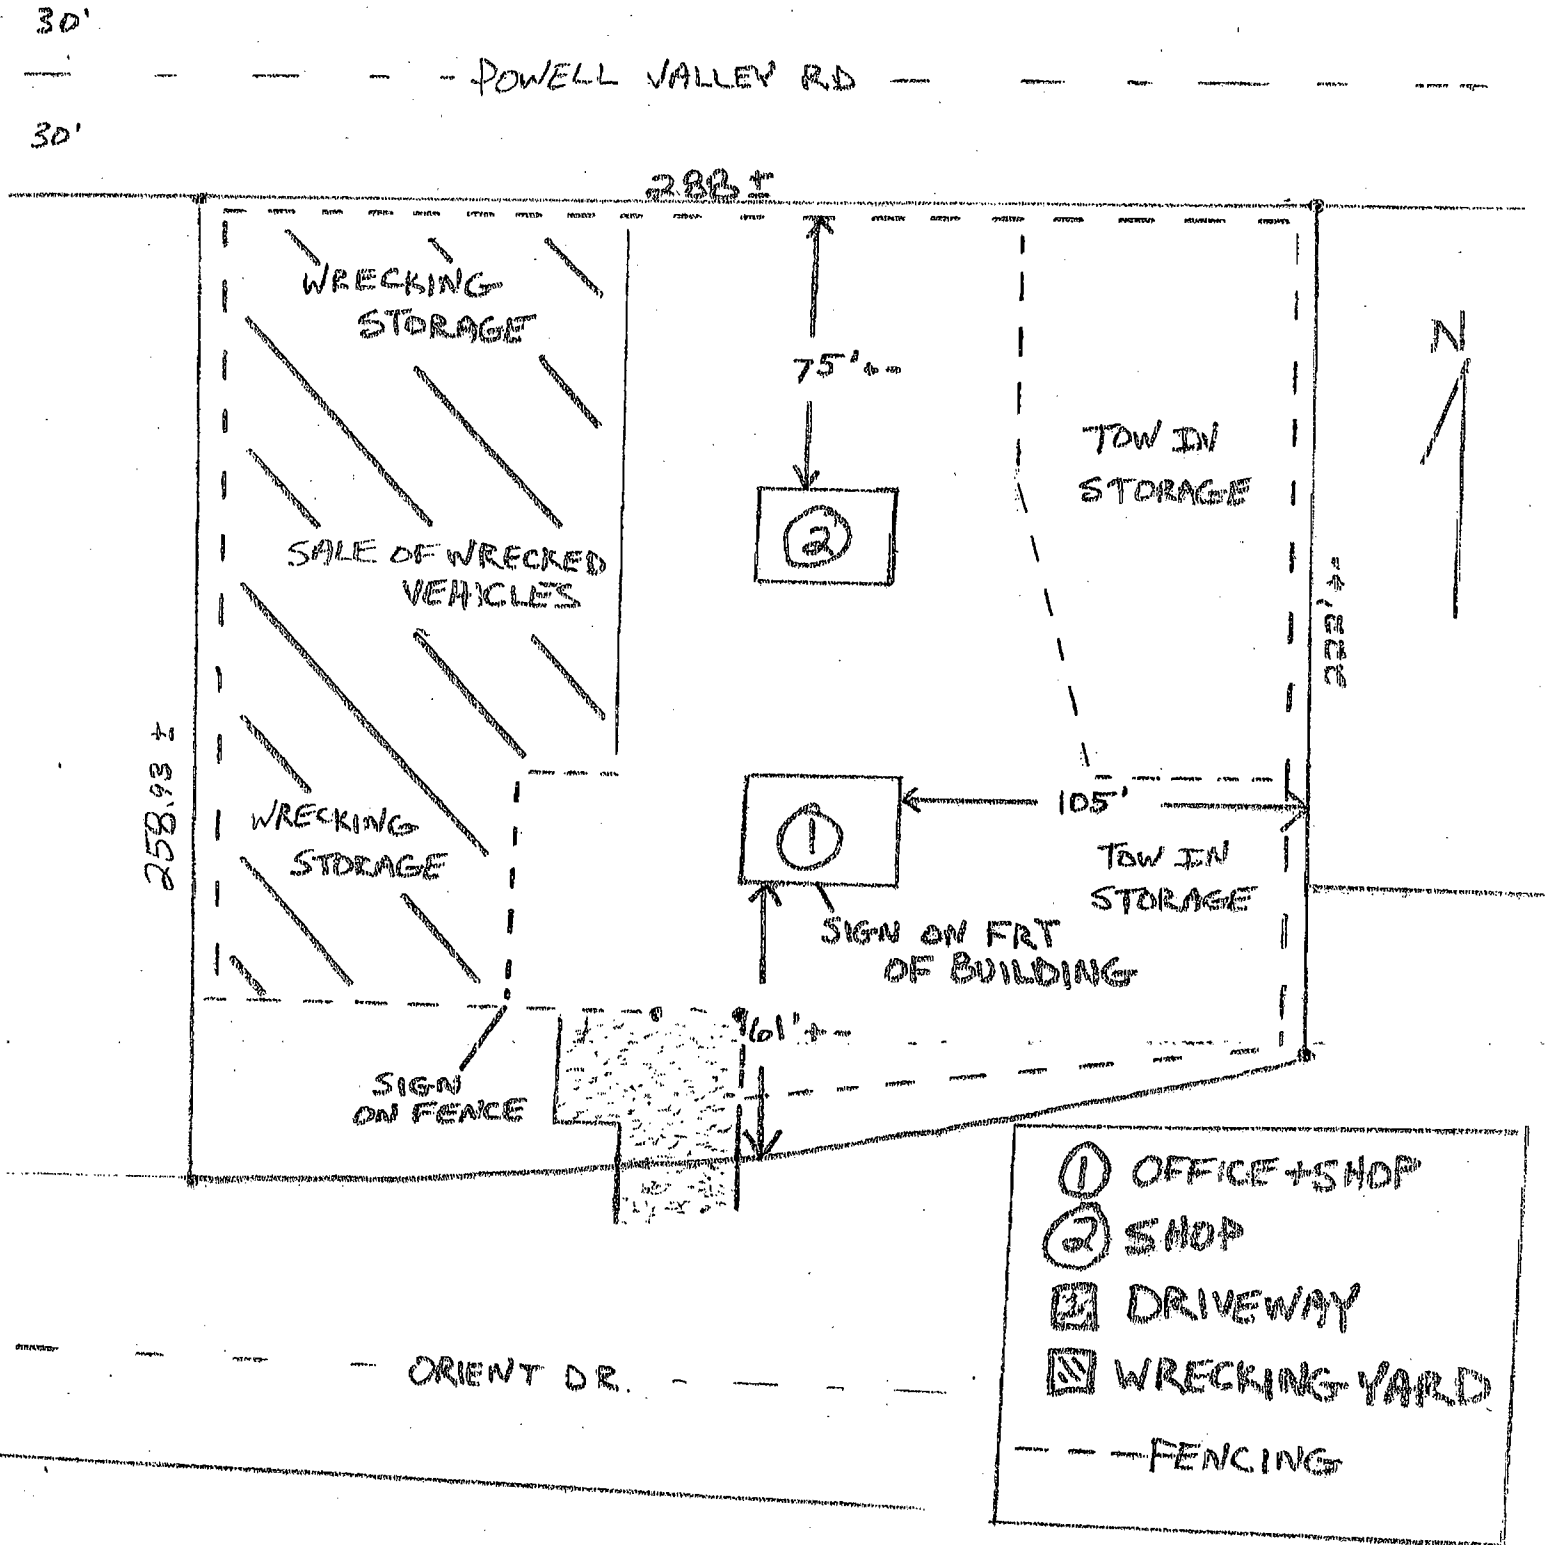 30'
POWELL VALLEY RD
30'
288 ±
WRECKING
STORAGE
N
75'+-
TOW IN
STORAGE
2
SALE OF WRECKED
VEHICLES
222'+-
258.93 ±
105'
WRECKING
STORAGE
1
TOW IN
STORAGE
SIGN ON FRT
OF BUILDING
61'+-
SIGN
ON FENCE
1 OFFICE + SHOP
2 SHOP
DRIVEWAY
WRECKING YARD
ORIENT DR.
FENCING